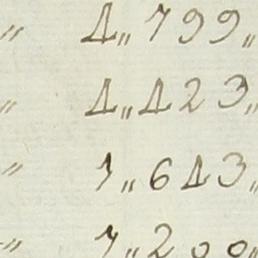 " 4„799„
" 4„423„
" 1„643„
" 1„200„